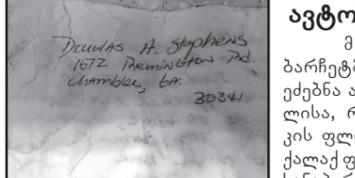 Douglas H. Stephens
1672 Remington Rd.
Chamblee, GA.
30341
ავტო
მ
ბარჩეტმ
ეძებნა ა
ლისა, რ
კის ფლ
ქალაქფ